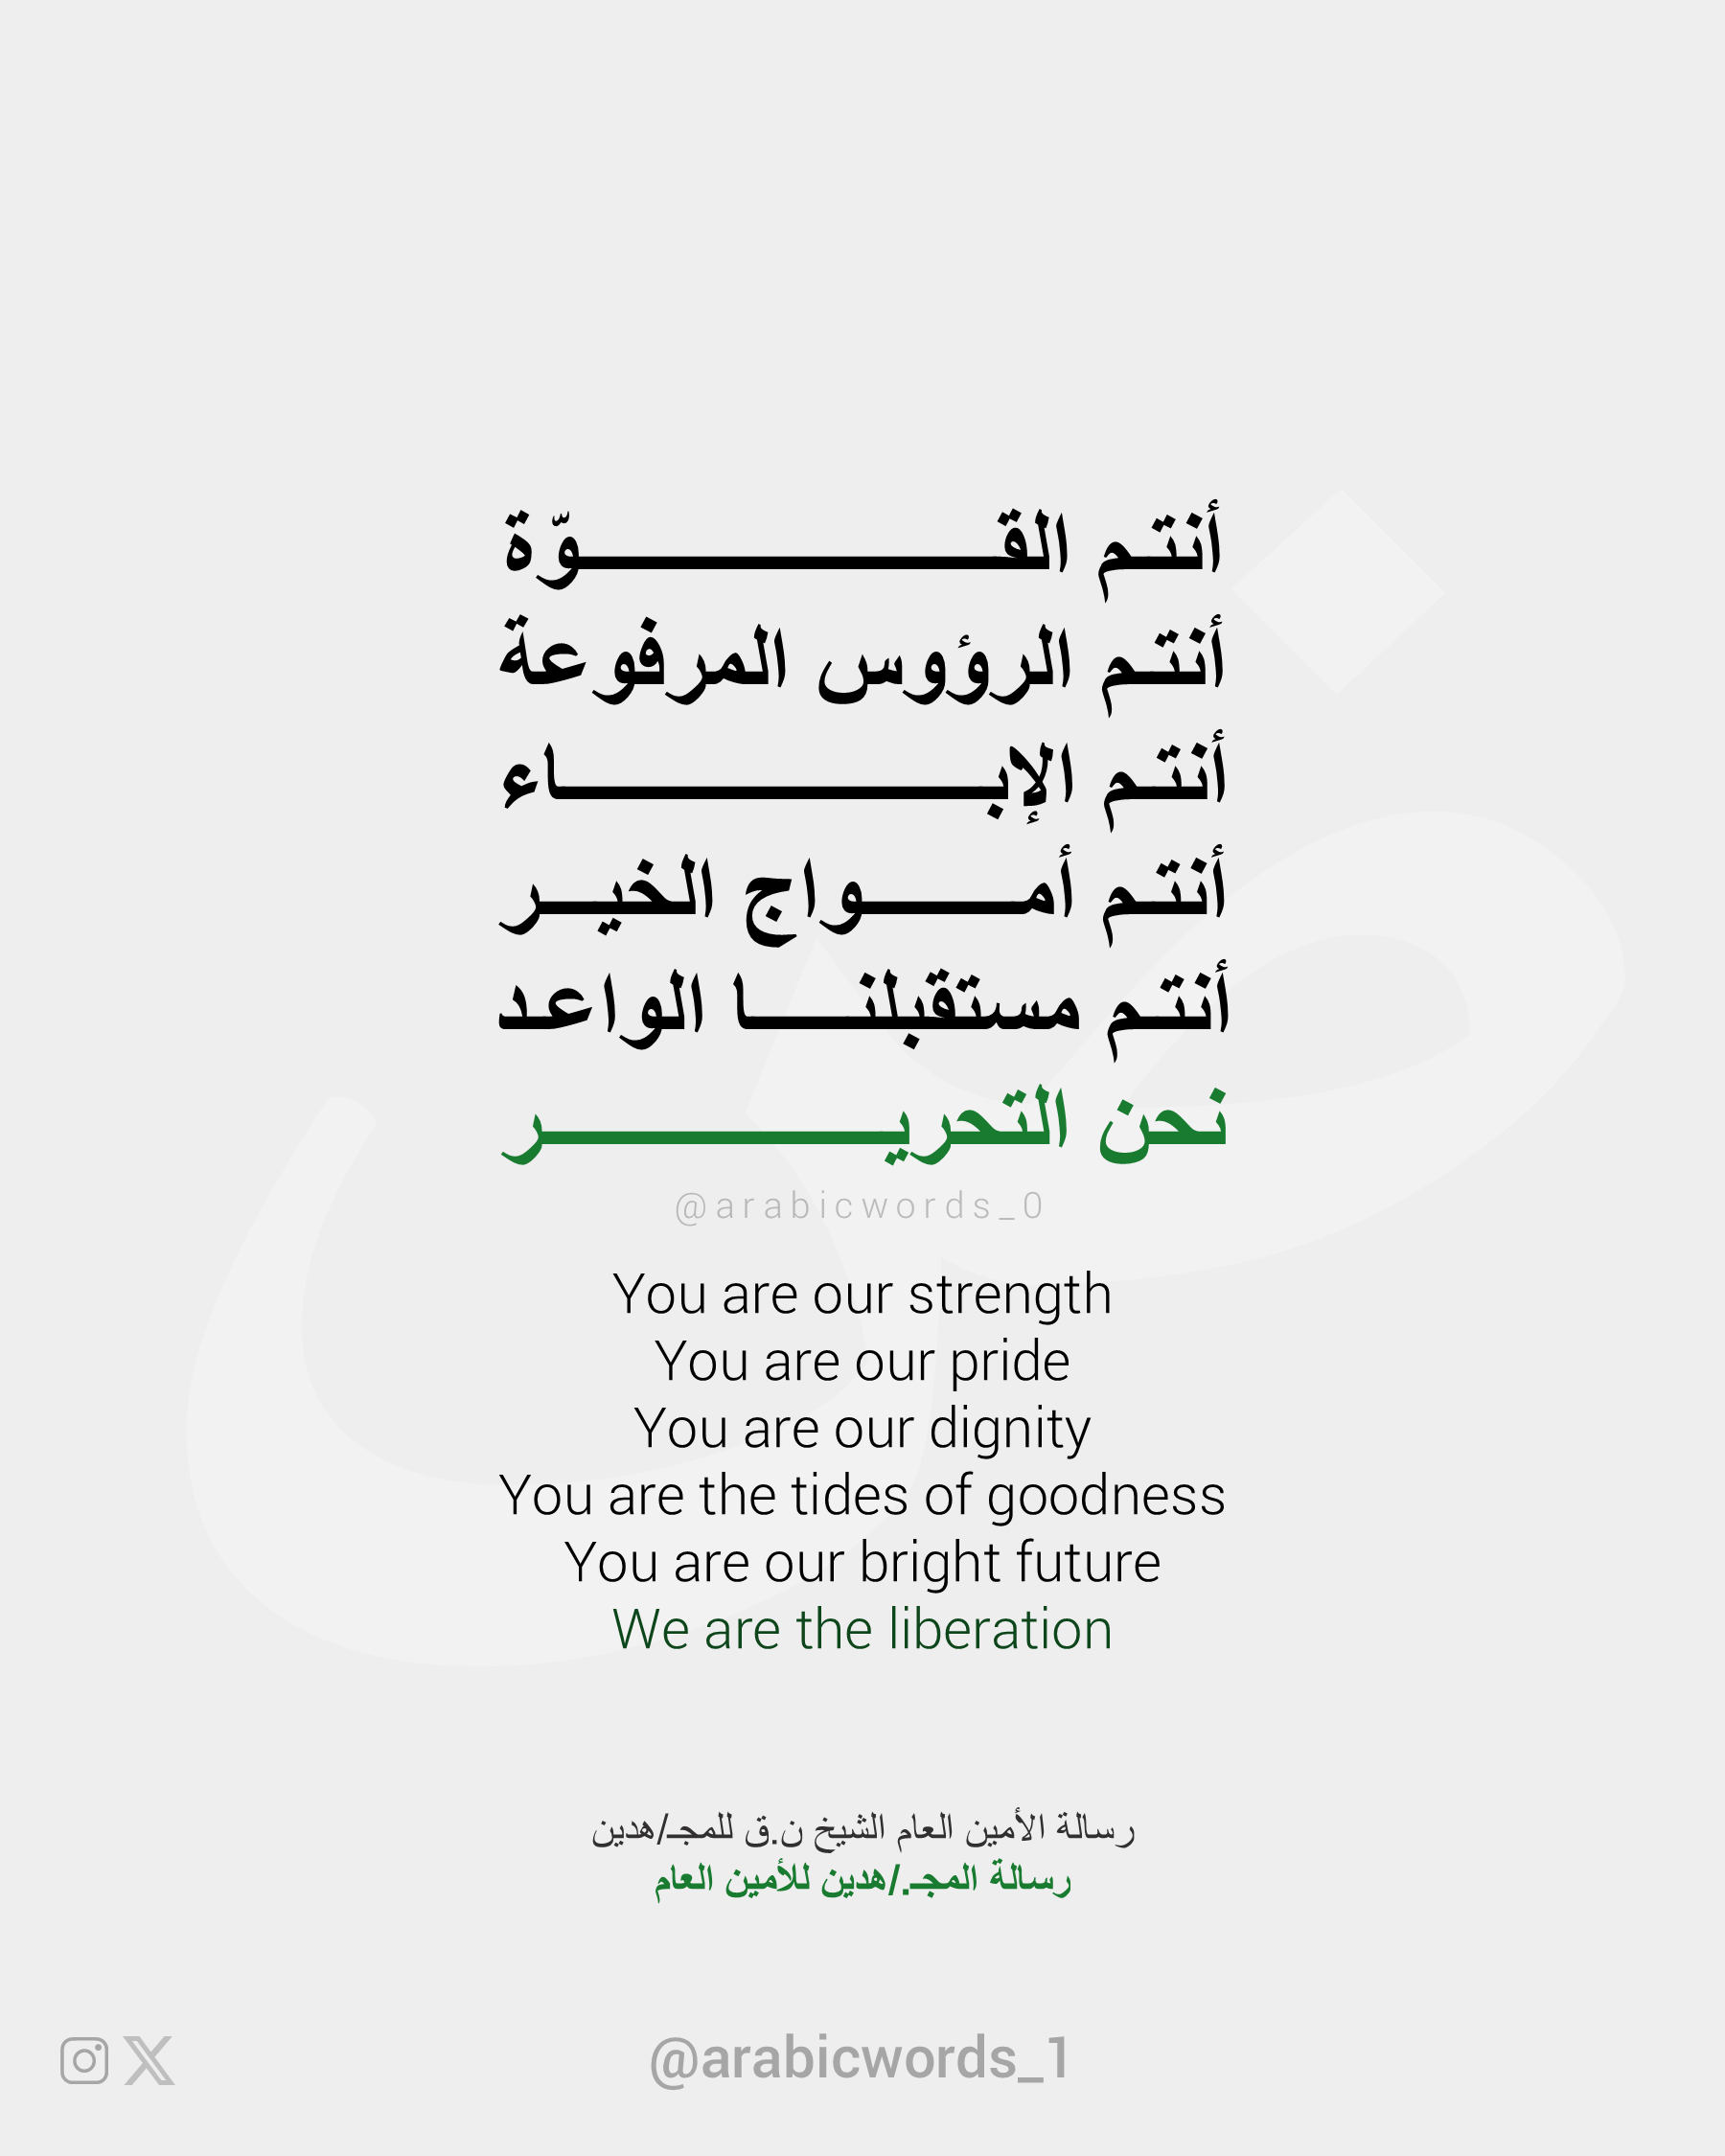 أنتم القـــــــــــــوّة
أنتم الرؤوس المرفوعة
أنتم الإبـــــــــــــاء
أنتم أمـــــواج الخيـر
أنتم مستقبلنـــا الواعد
نحن التحريـــــــــــر
@arabicwords_0
You are our strength
You are our pride
You are our dignity
You are the tides of goodness
You are our bright future
We are the liberation
رسالة الأمين العام الشيخ ن.ق للمجـ/هدين
رسالة المجـ./هدين للأمين العام
@arabicwords_1